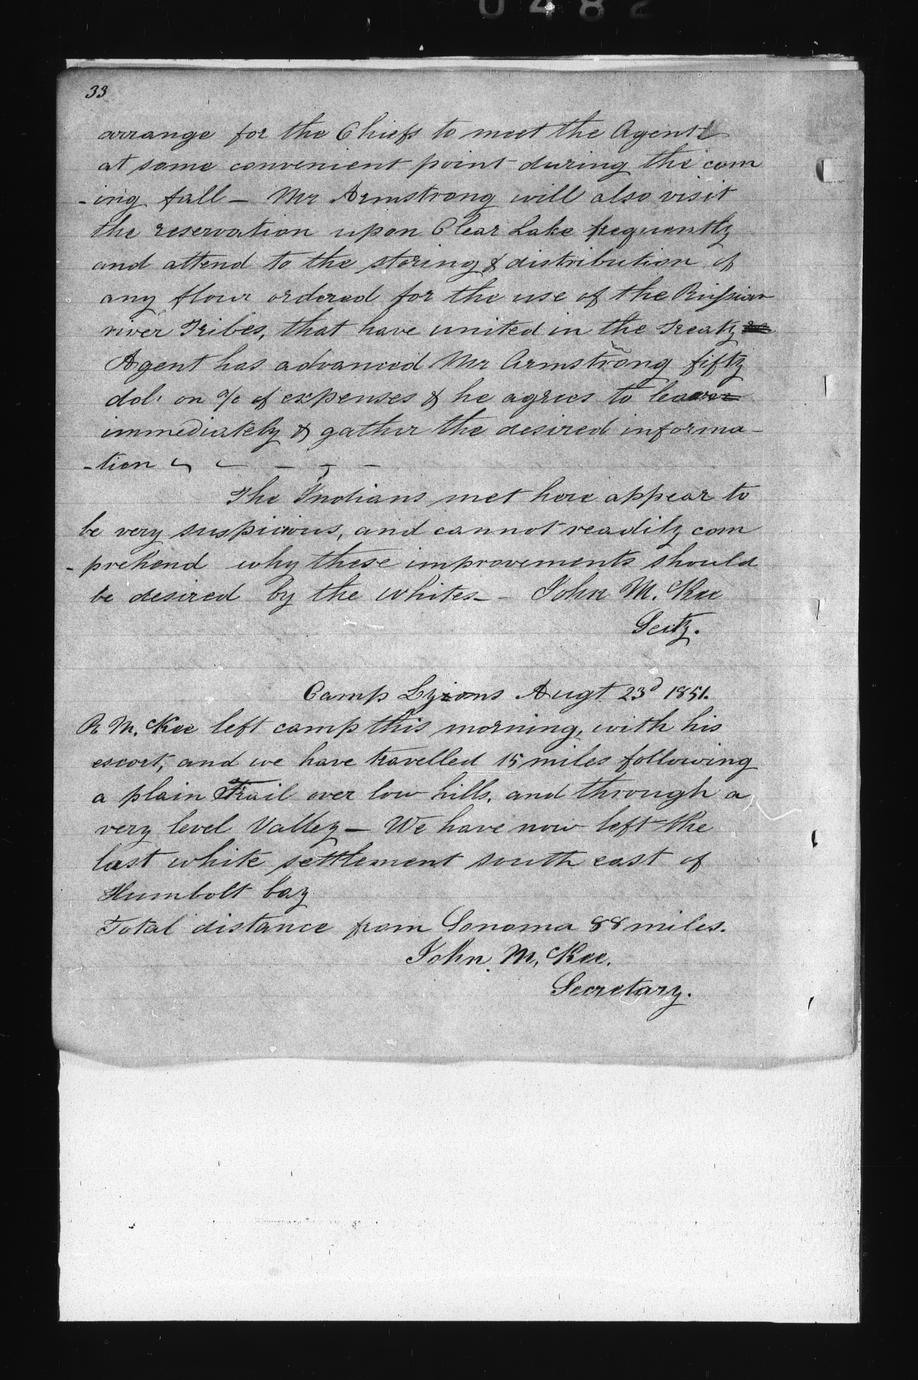 0482
33
arrange for the Chiefs to meet the Agent
at some convenient point during the com
-ing fall - Mr Armstrong will also visit
the reservation upon Clear Lake frequently
and attend to the storing & distribution of
any flour ordered for the use of the Russian
river Tribes, that have united in the Treaty
Agent has advanced Mr Armstrong fifty
dols on a/c of expenses & he agrees to leave
immediately & gather the desired informa-
-tion
The Indians met here appear to
be very suspicious, and cannot readily com
-prehend why these improvements should
be desired by the whites - John M. Kee
Secty.
Camp Lyons Augt 23d 1851.
R M. Kee left camp this morning, with his
escort, and we have travelled 15 miles following
a plain Trail over low hills, and through a
very level Valley - We have now left the
last white settlement south east of
Humbolt bay
Total distance from Sonoma 88 miles.
John M. Kee.
Secretary.